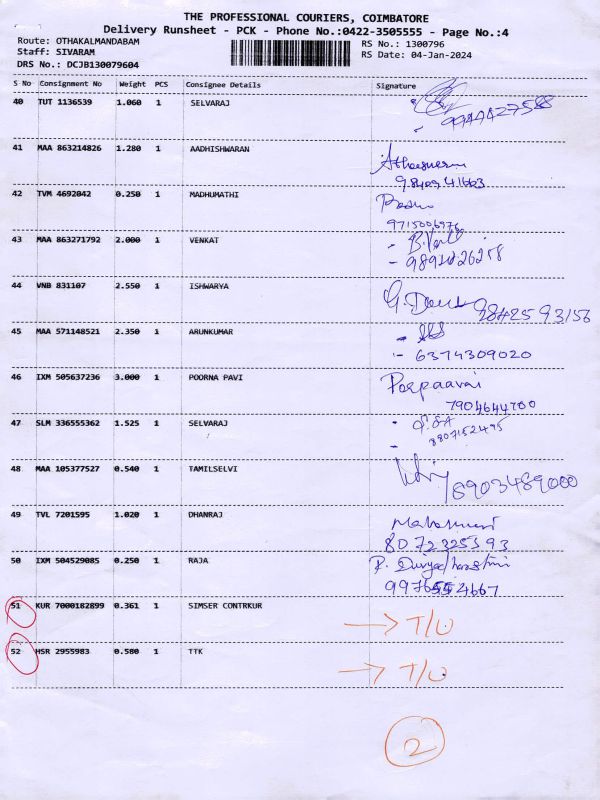 THE PROFESSIONAL COURIERS, COIMBATORE
Delivery Runsheet - PCK - Phone No.:0422-3505555 - Page No.:4
Route: OTHAKALMANDABAM RS No.: 1300796
Staff: SIVARAM RS Date: 04-Jan-2024
DRS No.: DCJB130079604
S No Consignment No Weight PCS Consignee Details Signature
40 TUT 1136539 1.060 1 SELVARAJ
41 MAA 863214826 1.280 1 AADHISHWARAN
42 TVM 4692042 0.250 1 MADHUMATHI
43 MAA 863271792 2.000 1 VENKAT
44 VNB 831107 2.550 1 ISHWARYA
45 MAA 571148521 2.350 1 ARUNKUMAR
6374309020
46 IXM 505637236 3.000 1 POORNA PAVI
7904644700
47 SLM 336555362 1.525 1 SELVARAJ
8807152495
48 MAA 105377527 0.540 1 TAMILSELVI
8903489000
49 TVL 7201595 1.020 1 DHANRAJ
8072325393
50 IXM 504529085 0.250 1 RAJA
51 KUR 7000182899 0.361 1 SIMSER CONTRKUR
→ T/U
52 HSR 2955983 0.580 1 TTK
→ T/U
2